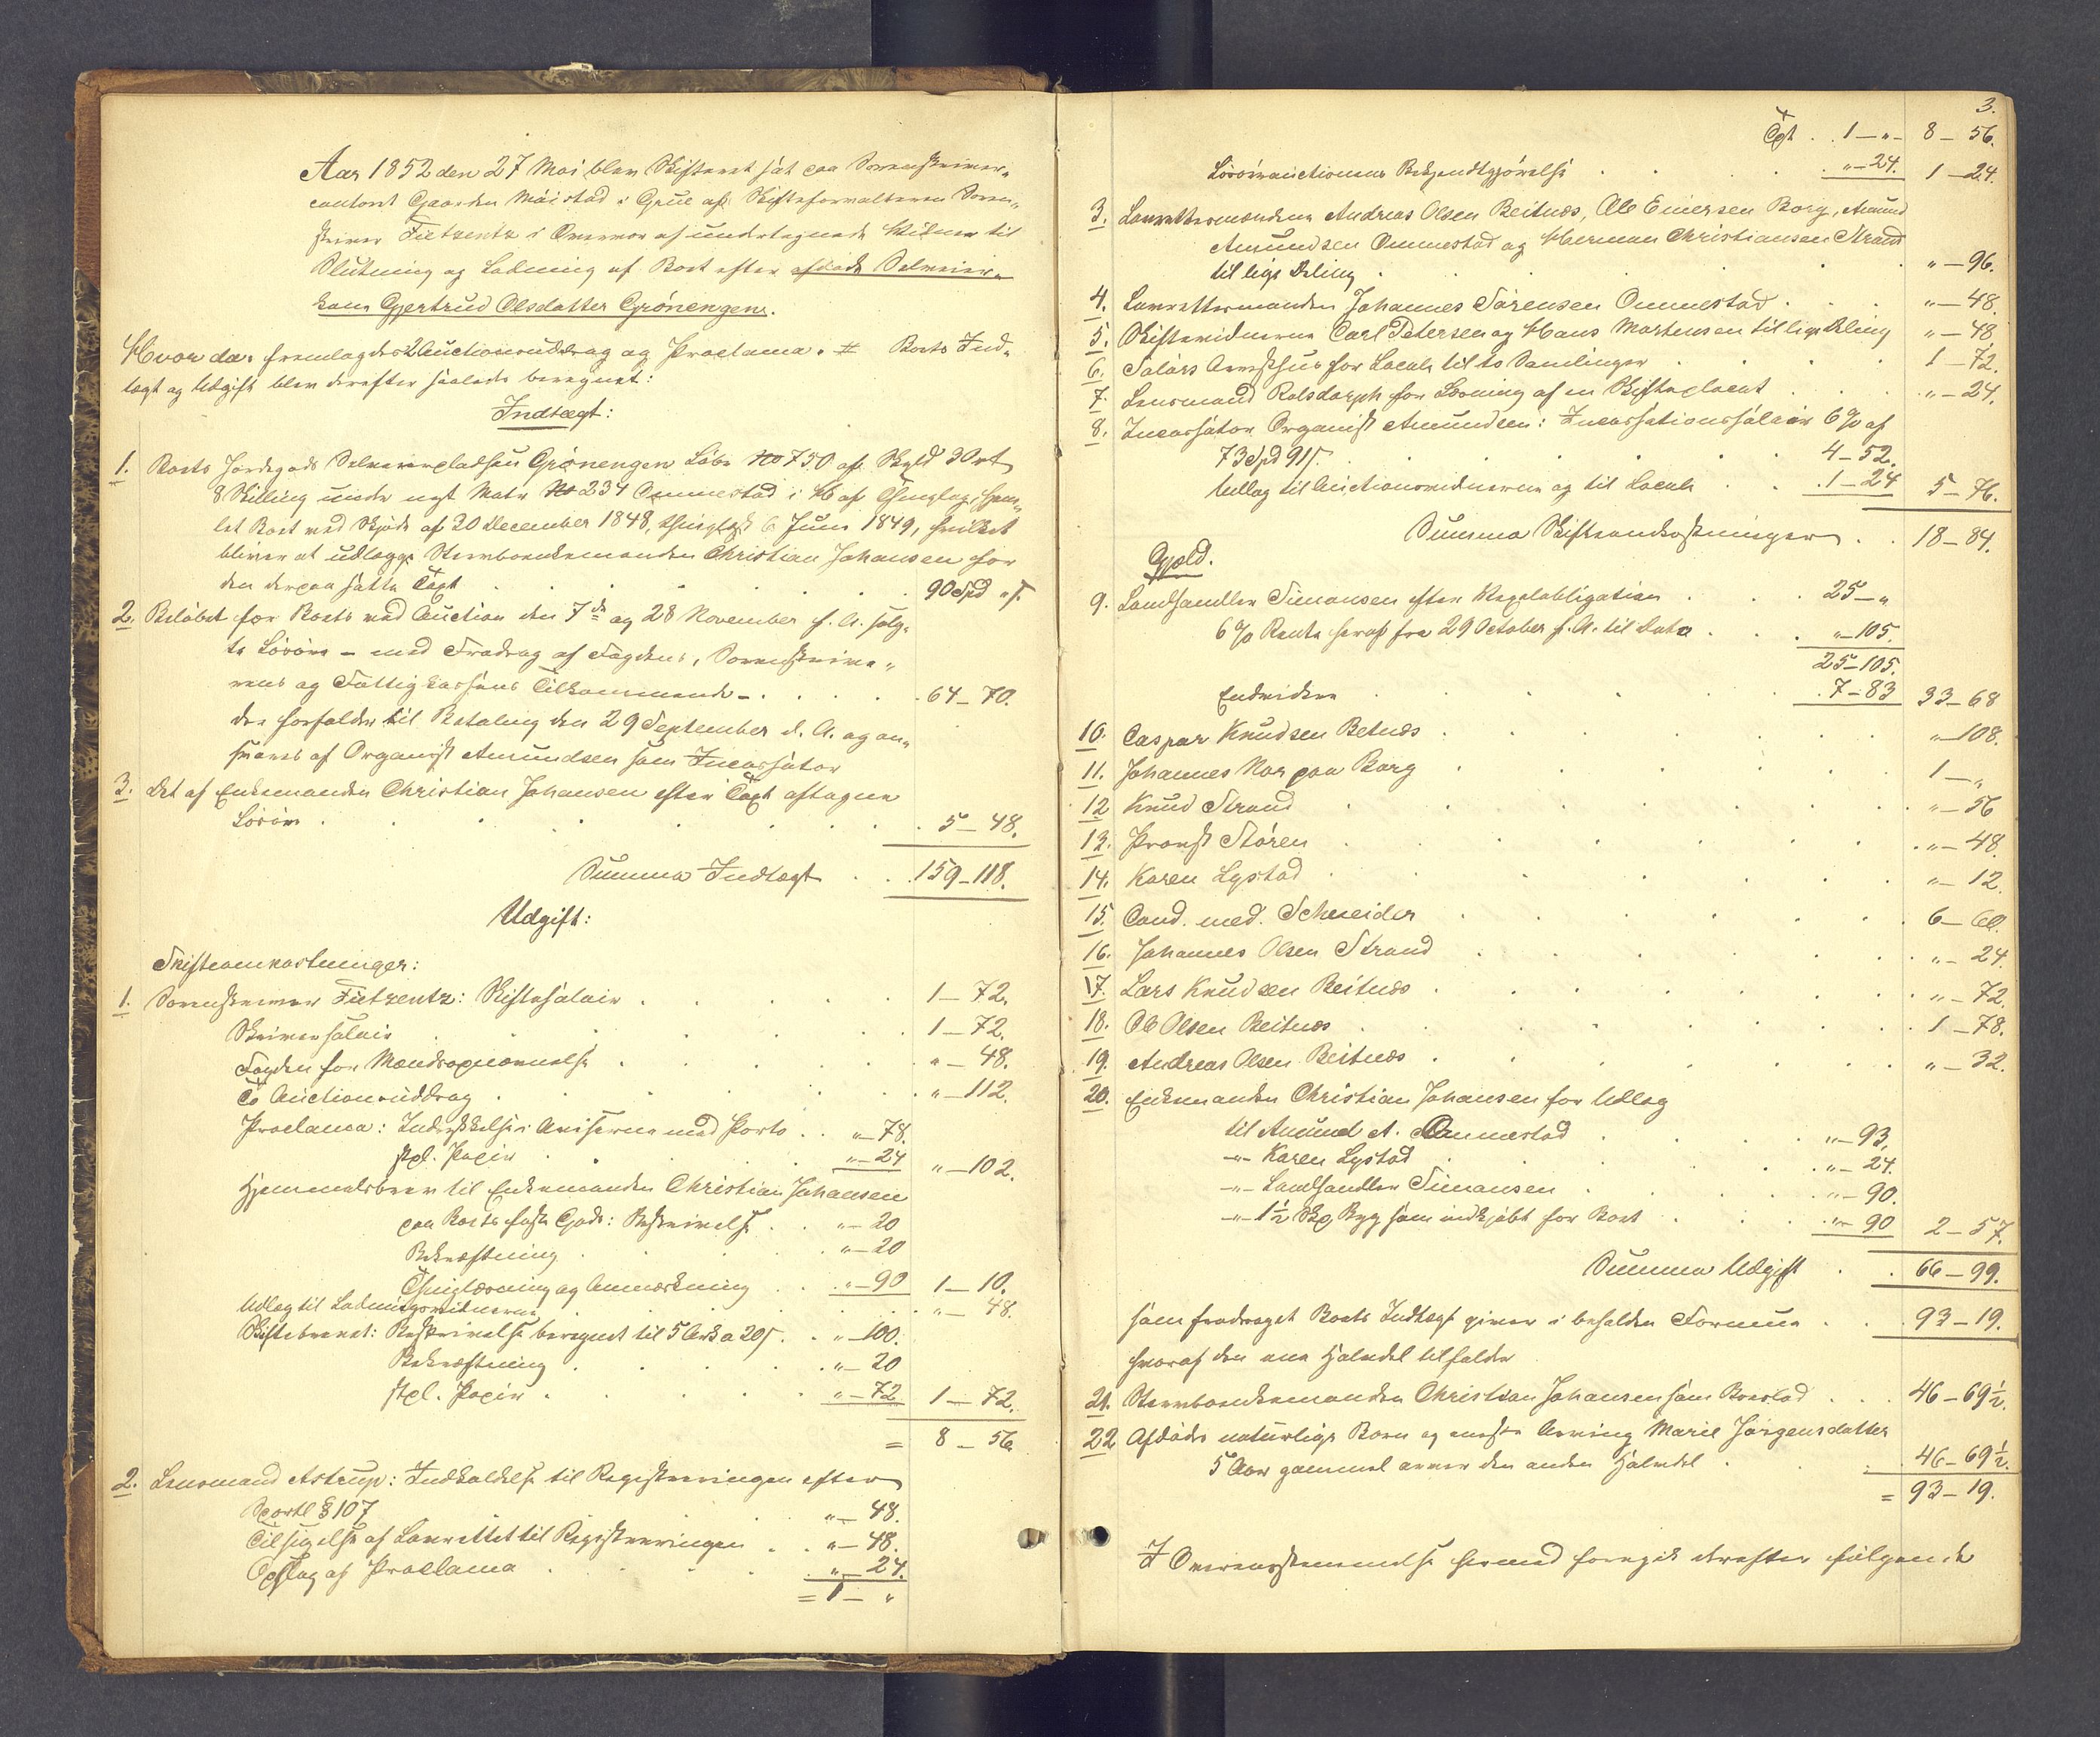 Aar 1852 den 27 Mai blev Skifteret sat paa Sorenskriver„
contoret Gaarden Möistad i Grue af Skifteforvalteren Soren„
skriver Fietzentz i Overvær af undertegnede Vidner til
Slutning og Ladning af Boet efter afdøde Selveier„
kone Gjertrud Olsdatter Grönengen.
Hvorda: fremlagdes 2 Auctionsuddrag og Proclama. # Boets Ind„
tægt og Udgift blev derefter saaledes beregnet:
Indtægt:
1. Boets Jordegods Selveierpladsen Grönengen Löbe No 750 af Skyld 3 Ort
8 Skilling under nyt Matr No 234 Ommestad i af Thinglag, hjem„
let Boet ved Skjöde af 20 December 1848, thinglæst 6 Juni 1849, hvilket
bliver at udlægge Stervboenkemanden Christian Johansen for
den derpaa satte Taxt . . . . . 90 Spd „ s.
2. Belöbet for Boets ved Auction den 7de og 28 November f. A. solg„
te Lösöre – med Fradrag af Fogdens, Sorenskrive„
rens og Fattigkassens Tilkommende – . . . 64 – 70.
der forfalder til Betaling den 29 September d. A. og an„
svares af Organist Amundsen som Incassator
3. Det af Enkemanden Christian Johansen efter Taxt aftagne
Lösöre . . . . . . . 5 – 48.
Summa Indtægt . . 159 – 118.
Udgift:
Skifteomkostninger:
1. Sorenskriver Fietzentz: Skiftesalair . . . . 1 – 72.
Skriversalair . . . . . 1 – 72.
Fogden for Mændsopnævnelse . . . . „ – 48.
To Auctionsuddrag . . . . . „ – 112.
Proclama: Indrykkelse i Aviserne med Porto . . „ – 78.
stpl. Papir . . . „ – 24 „ – 102.
Hjemmelsbrev til Enkemanden Christian Johansen
paa Boets faste Gods: Beskrivelse . . „ – 20
Bekræftning . . . „ – 20
Thinglæsning og Anmærkning . . „ – 90 1 – 10.
Udlæg til Ladningsvidnerne . . . . . „ – 48.
Skiftebrevet: Beskrivelse beregnet til 5 Ark a 20 s. . „ – 100.
Bekræftning . . . . „ – 20
stpl. Papir . . . . „ – 72 1 – 72.
= 8 – 56
2. Lensmand Astrup: Indkaldelse til Registreringen efter
Sportl § 107 . . . . „ – 48.
Tilsigelse af Lavrettet til Registreringen . . „ – 48.
Opslag af Proclama . . . . „ – 24.
= 1 – „
3.
Tpt . . 1 – „ – 8 – 56.
Lösöreauctionens Bekjendtgjörelse . . . . „ – 24. 1 – 24.
3. Lavrettesmændene Andreas Olsen Beitnæs, Ole Einersen Borg, Amund
Amundsen Ommestad og Herman Christiansen Strand
til lige Deling . . . . . . „ – 96.
4. Lavrettesmanden Johannes Sörensen Ommestad . . . „ – 48.
5. Skiftevidnerne Carl Petersen og Hans Mortensen til lige Deling „ – 48.
6. Solörs Arresthus for Locale til to Samlinger . . . 1 – 72.
7. Lensmand Rolsdorph for Læsning af en Skifteplacat . . „ – 24.
8. Incassator Organist Amundsen: Incassationssalair 6 % af
73 Spd 91 s. . . . . . 4 – 52.
Udlæg til Auctionsvidnerne og til Locale . . 1 – 24 5 – 76.
Summa Skifteomkostninger . . 18 – 84.
Gjeld.
9. Landhandler Simonsen efter Regelobligation . . . 25 – „
6 % Rente heraf fra 29 October f. A. til Dato . . . „ – 105.
25 – 105.
Endvidere . . . . . . 7 – 83 33 – 68
10. Caspar Knudsen Betnæs . . . . . . „ – 108.
11. Johannes Nor paa Borg . . . . . 1 – „
12 Knud Strand . . . . . . . „ – 56
13. Provst Stören . . . . . . „ – 48.
14. Karen Lystad . . . . . . „ – 12.
15 Cand. med. Schneider . . . . . 6 – 60.
16. Johannes Olsen Strand . . . . . „ – 24.
17. Lars Knudsen Beitnæs . . . . . . „ – 72.
18. Ole Olsen Beitnæs . . . . . . . 1 – 78.
19. Andreas Olsen Beitnæs . . . . . . „ – 32.
20. Enkemanden Christian Johansen for Udlæg
til Amund A. Ommestad . . . . „ – 93.
– „ – Karen Lystad . . . . . „ – 24.
– „ – Landhandler Simonsen . . . . „ – 90.
– „ – 1½ Skp Byg som indkjöbt for Boet . . . „ – 90 2 – 57.
Summa Udgift . . 66 – 99.
som fradraget Boets Indtægt giver i beholden Formue . . . 93 – 19.
hvoraf den ene Halvdel tilfalder
21. Stervboenkemanden Christian Johansen som Boeslod . . . 46 – 69½.
22 Afdödes naturlige Barn og eneste Arving Marie Jörgensdatter
5 Aar gammel arver den anden Halvdel . . . 46 – 69½.
= 93 – 19.
I Overensstemmelse hermed foregik derefter fölgende